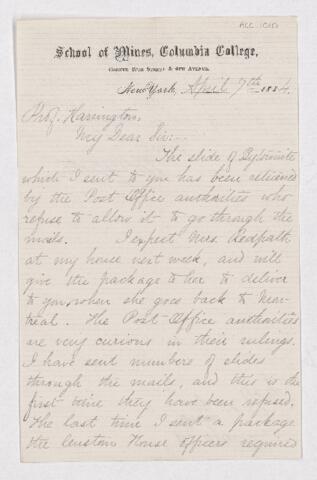 School of Mines, Columbia College,
New York, April 7th 1884
Prof. Harrington,
My Dear Sir:-
The slide of
which I sent to you has been returned
by the Post Office authorities who
refuse to allow it to go through the
mails. I expect Mrs. Redpath
at my house next week, and will
give the package to her to deliver
to you, when she goes back to Mon-
treal. The Post-Office authorities
are very curious in their rulings.
I have sent numbers of slides
through the mails, and this is the
first time they have been refused.
The last time I sent a package
the Custom House officers required